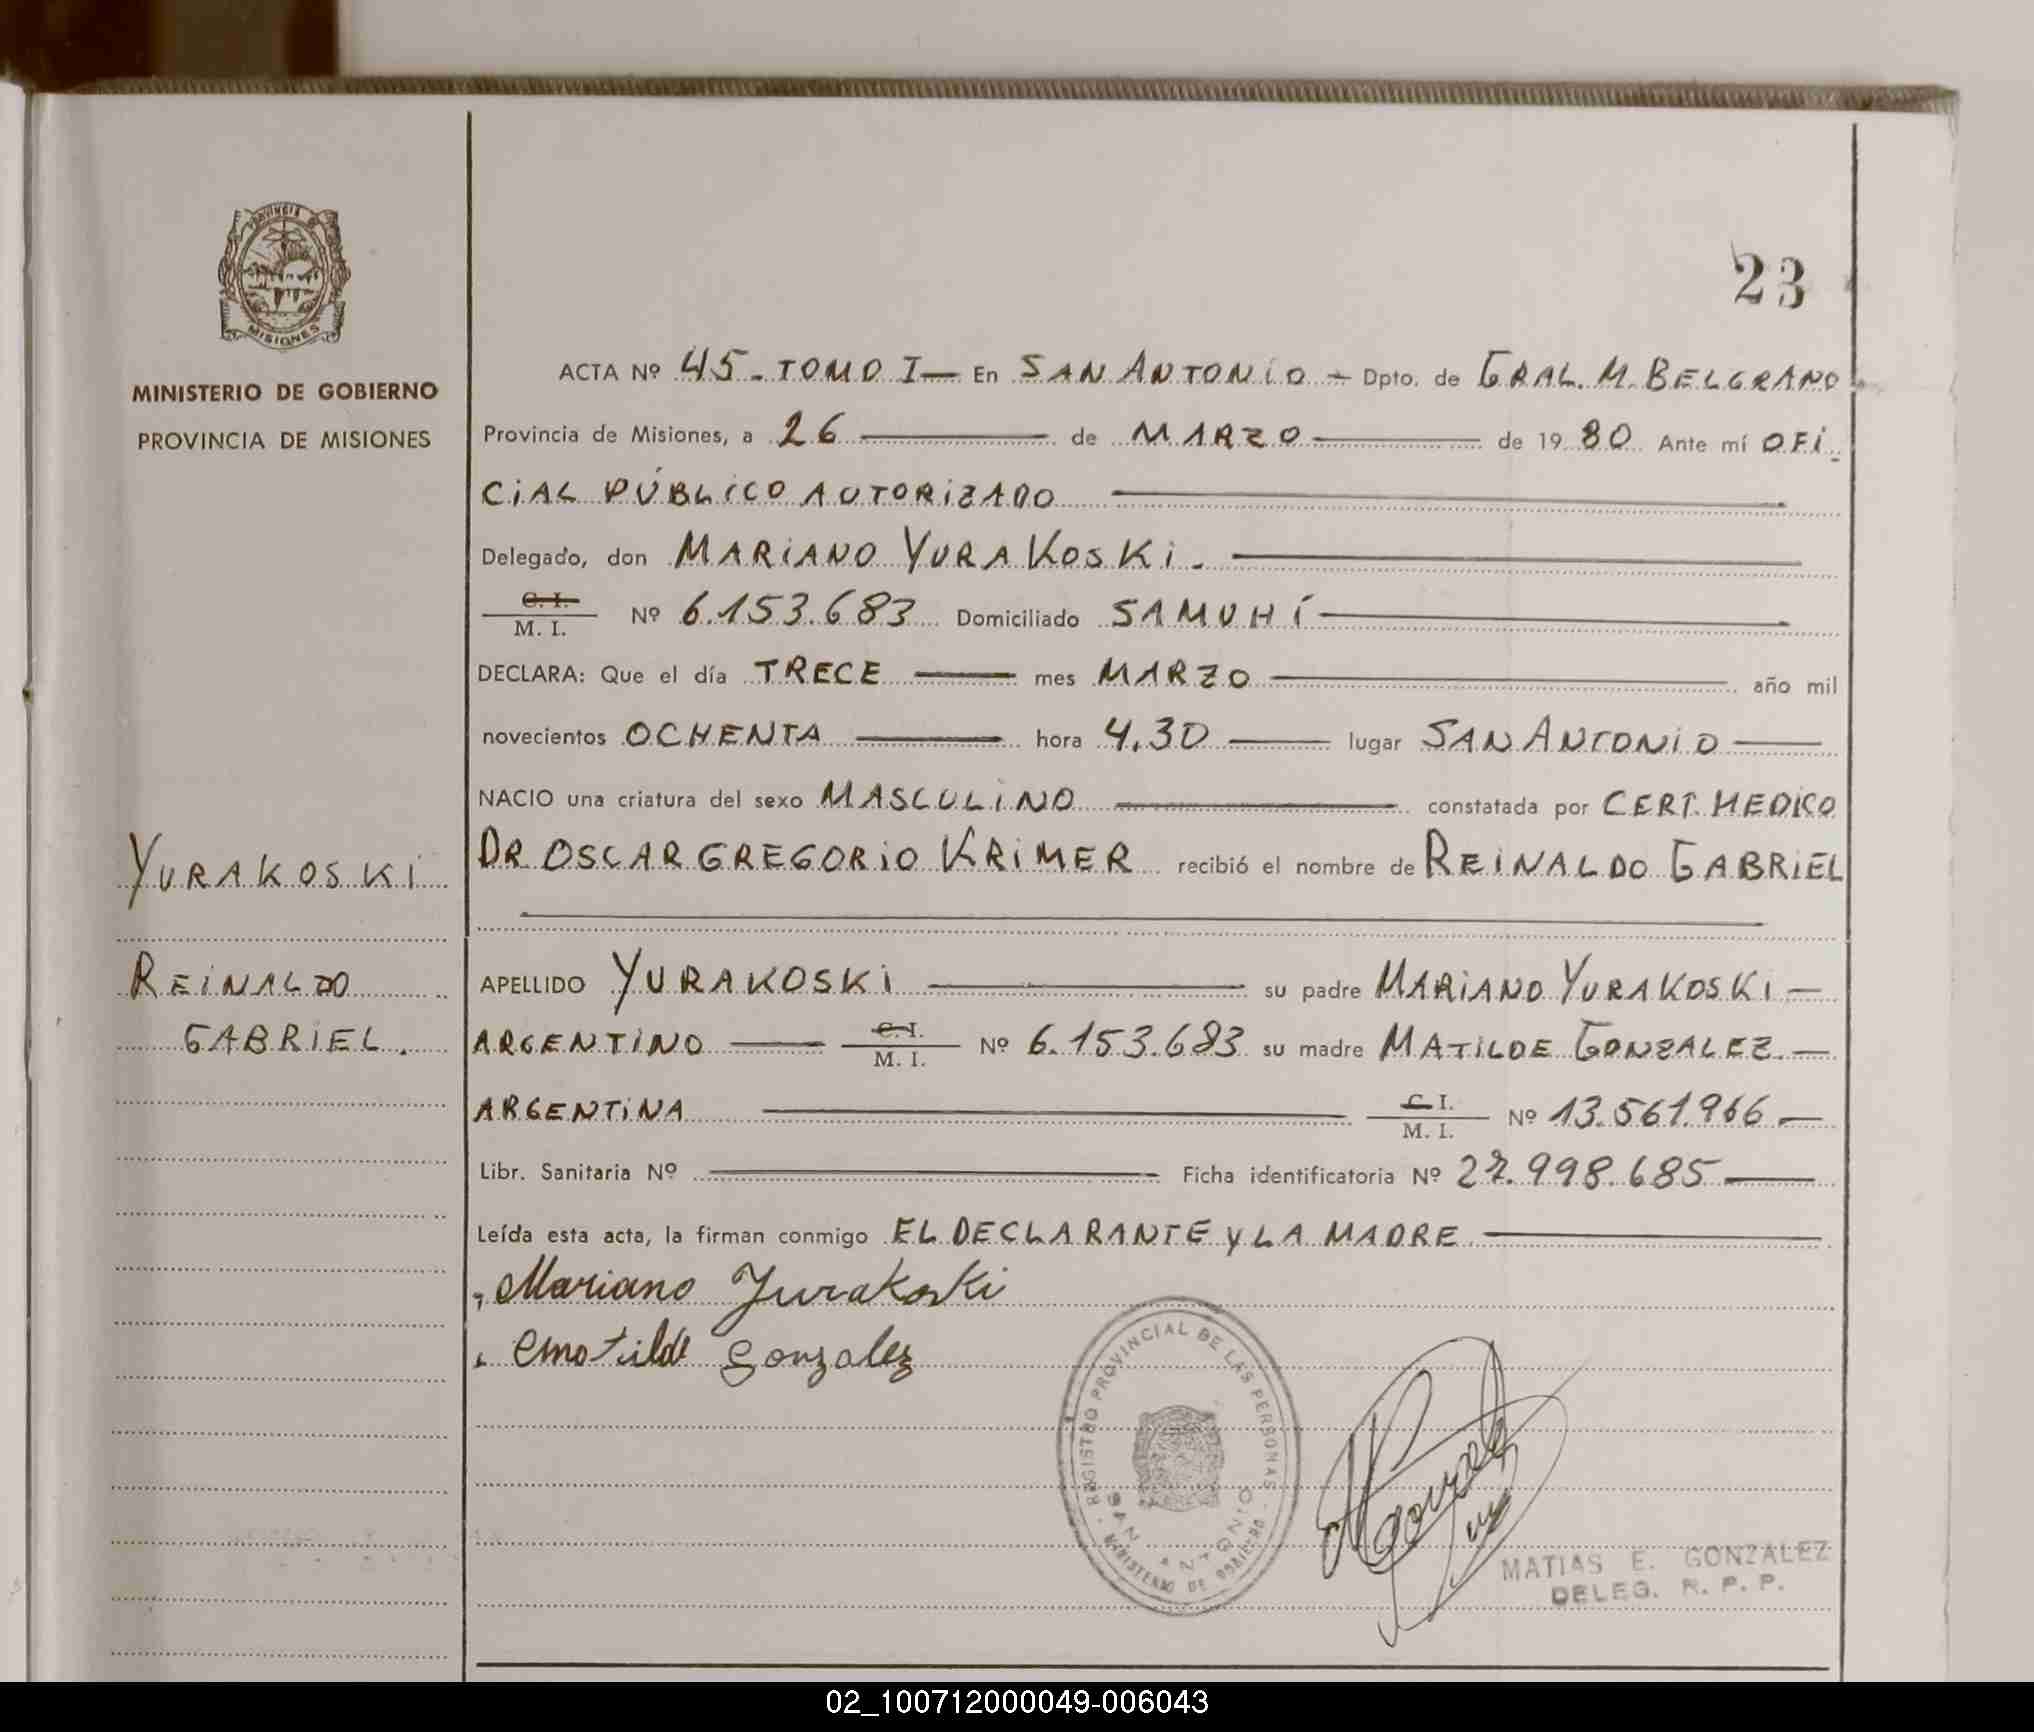 PROVINCIA DE
MISIONES
MINISTERIO DE GOBIERNO
PROVINCIA DE MISIONES
23
ACTA Nº 45 - TOMO I — En SAN ANTONIO — Dpto. de GRAL. M. BELGRANO
Provincia de Misiones, a 26 de MARZO de 1980 Ante mí OFI-
CIAL PÚBLICO AUTORIZADO
Delegado, don MARIANO YURAKOSKI.
C. I.
M. I. Nº 6.153.683 Domiciliado SAMUHÍ
DECLARA: Que el día TRECE mes MARZO año mil
novecientos OCHENTA hora 4.30 lugar SAN ANTONIO
NACIO una criatura del sexo MASCULINO constatada por CERT. MEDICO
DR OSCAR GREGORIO KRIMER recibió el nombre de REINALDO GABRIEL
YURAKOSKI
REINALDO
GABRIEL.
APELLIDO YURAKOSKI su padre MARIANO YURAKOSKI —
ARGENTINO C. I. M. I. Nº 6.153.683 su madre MATILDE GONZALEZ —
ARGENTINA C. I. M. I. Nº 13.561.966 —
Libr. Sanitaria Nº Ficha identificatoria Nº 27.998.685
Leída esta acta, la firman conmigo EL DECLARANTE Y LA MADRE
Mariano Yurakoski
Matilde Gonzalez
REGISTRO PROVINCIAL DE LAS PERSONAS
SAN ANTONIO
MINISTERIO DE GOBIERNO
MATIAS E. GONZALEZ
DELEG. R. P. P.
02_100712000049-006043